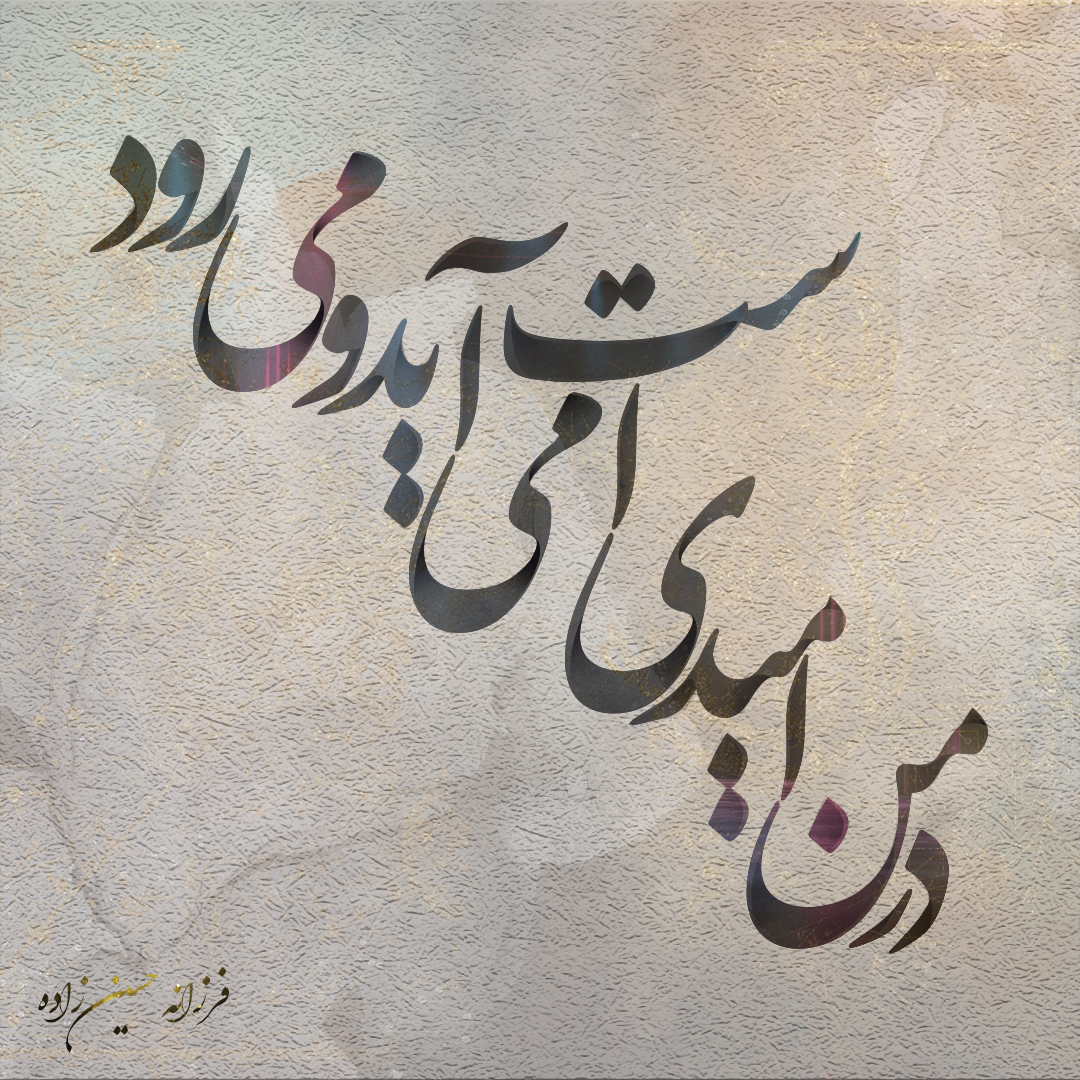 در من امیدی است می آید و می رود
فرزانه حسین زاده